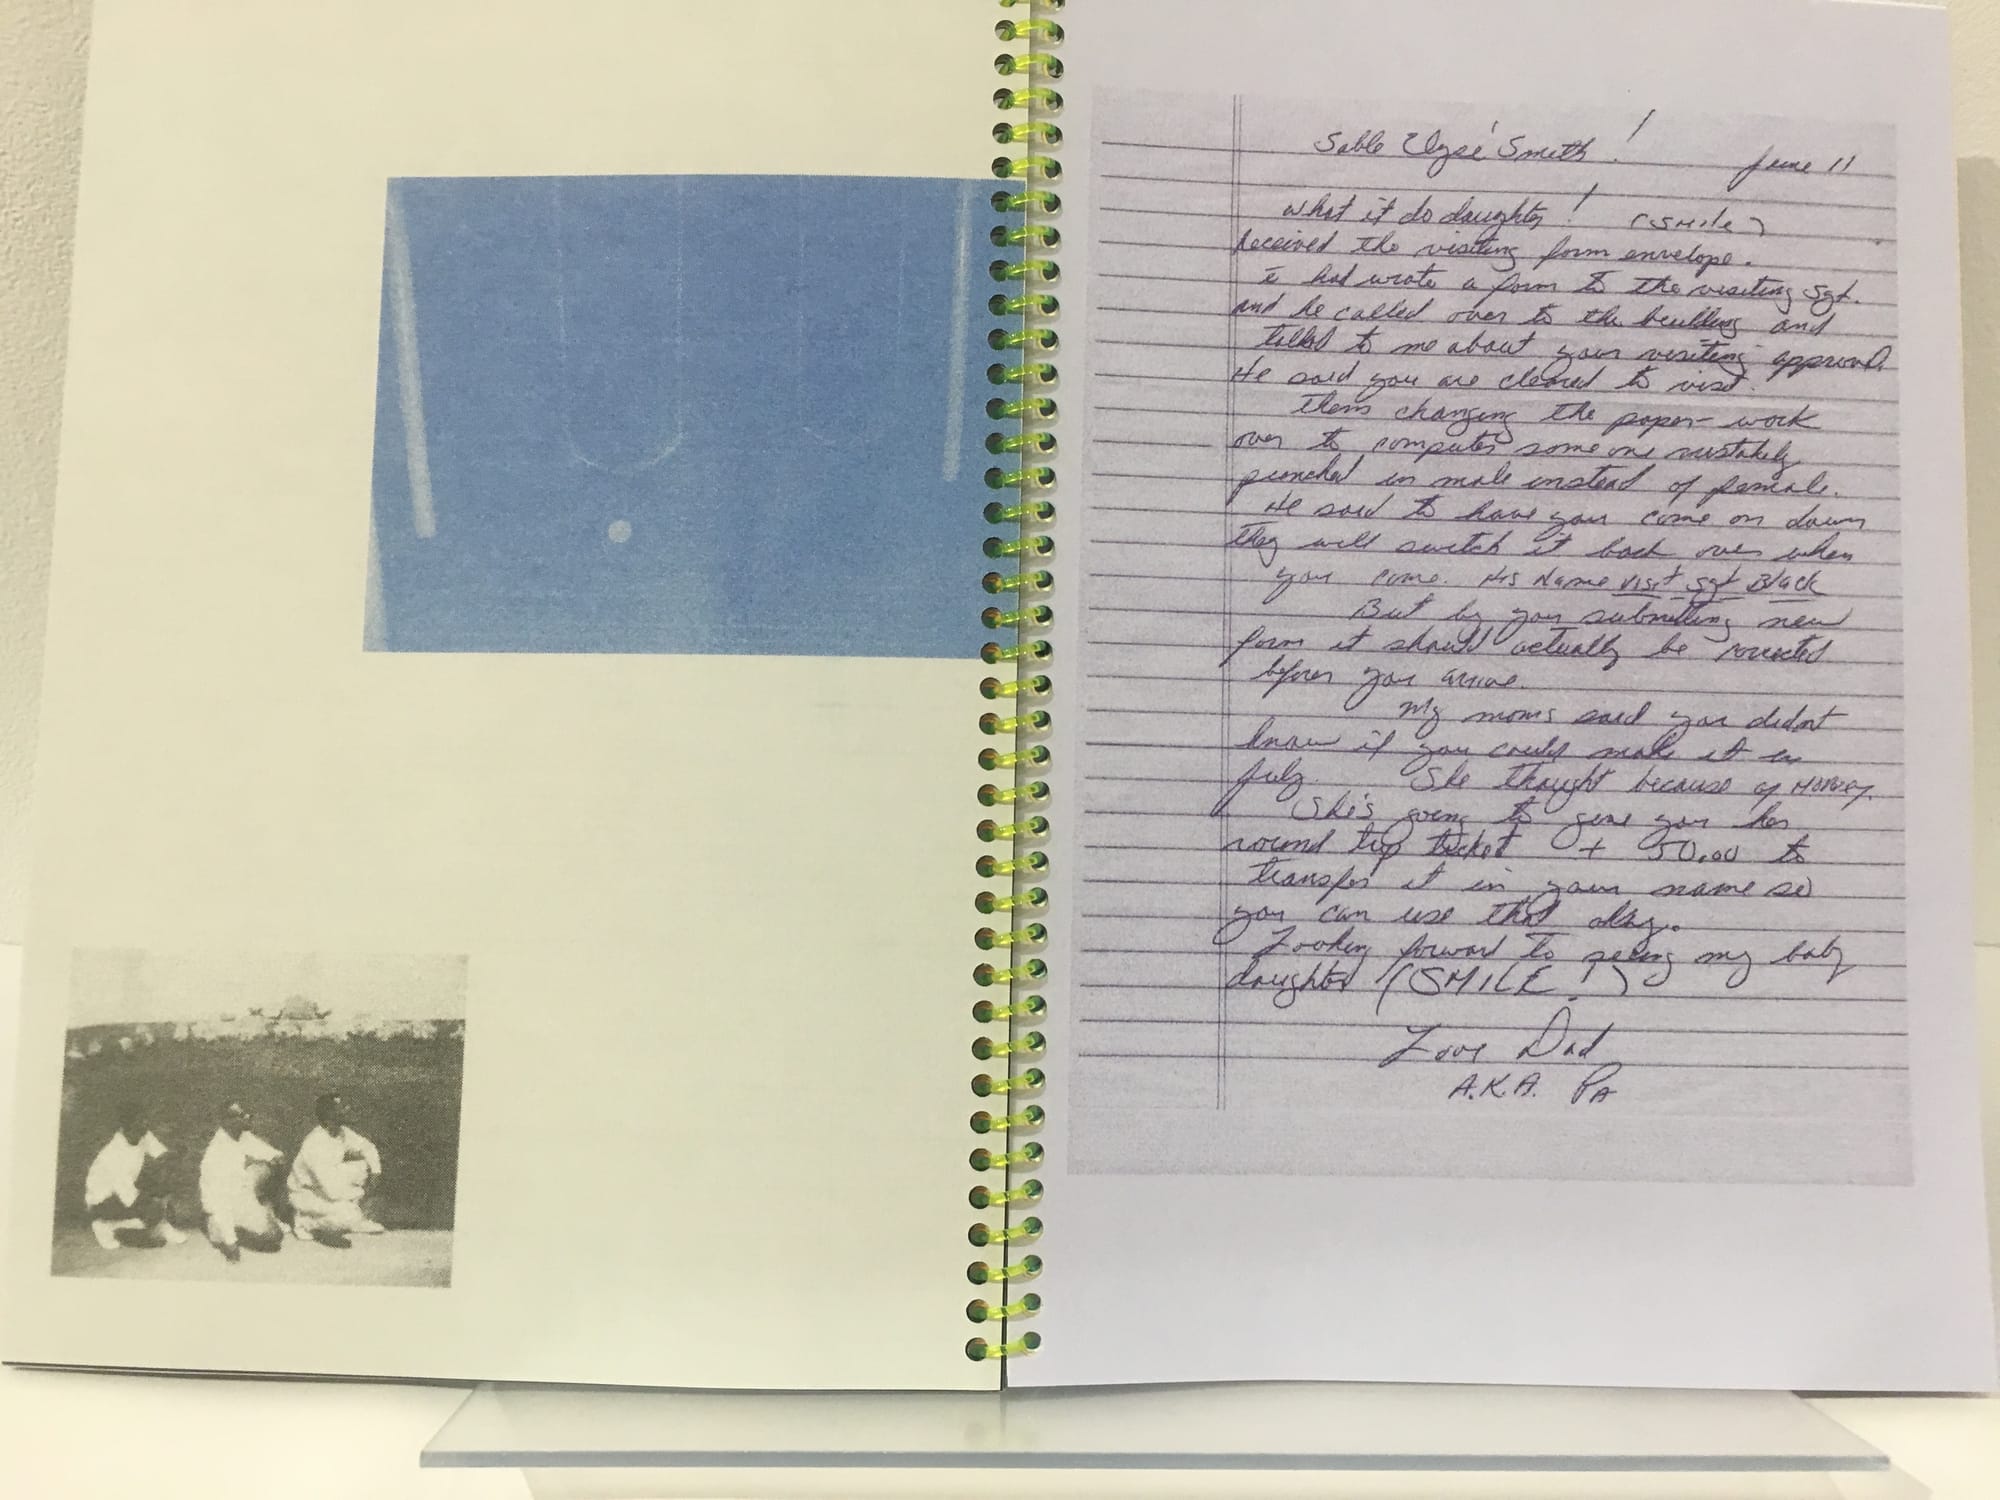 Sable Elyse' Smith!
June 11
what it do daughter! (SMile)
Received the visiting form envelope.
I had wrote a form to the visiting Sgt.
and he called over to the building and
talked to me about your visiting approval.
He said you are cleared to visit.
Them changing the paper-work
over to computer some one mistakely
punched in male instead of female.
He said to have you come on down
they will switch it back over when
you come. His Name Visit Sgt Black
But by you submitting new
form it should actually be corrected
before you arrive.
My moms said you didnt
know if you could make it in
July. She thought because of MONEY.
She's going to give you her
round trip ticket + 50.00 to
transfer it in your name so
you can use that okay.
Looking forward to seeing my baby
daughter (SMILE!)
Love Dad
A.K.A. PA